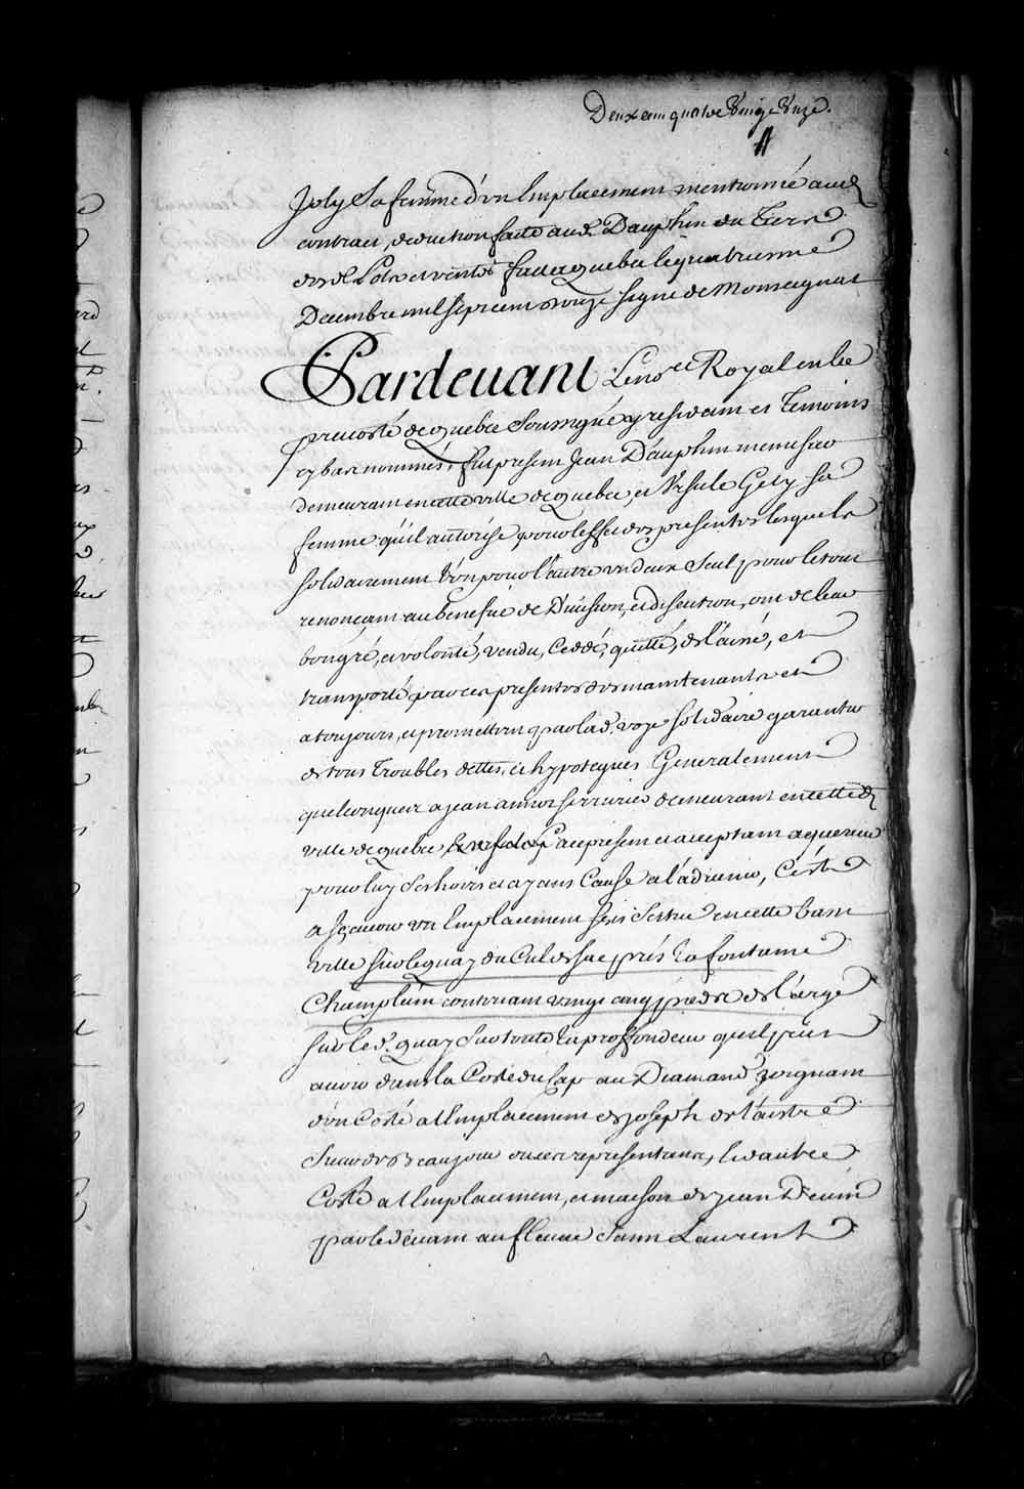 Deux cent quatre Vingt Unze.
Joly Sa femme d'un Emplacement mentionné aud.
contract, deduction faite aud. Dauphin du Tiers
desd. Lots et ventes fait a quebec le quatriesme
Decembre mil sept cent onze signé de Monseignat
Pardevant Le no.re Royal en la
prevosté de quebec Soussigné y residant et Temoins
cy bas nommés, fut present Jean Dauphin menuisier
demeurant en cette ville de quebec, et Ursule Gely sa
femme qu'il autorise pour l'effet des presentes lesquels
solidairement l'un pour l'autre un deux Seul pour le tout
renonçant au benefice de Division, et discution, ont de leur
bon gré, et volonté, vendu, Ceddé, quitté, délaissé, et
transporté par ces presentes des maintenant et
a toujours, et promettent par lad. voye solidaire garantir
de tous Troubles dettes, et hypoteques Generalement
quelconques a jean amiot serrurier demeurant en cetted.
ville de quebec a ce present et acceptant aquereur
pour luy Ses hoirs et ayans Cause a l'advenir, C'est
a Sçavoir un Emplacement sis Scitué en cette basse
ville sur le quay du Culdesac près la fontaine
Champlain contenant vingt cinq pieds de large
sur led. quay Sur toute la proffondeur qu'il peut
avoir dans la Coste du Cap au Diamand joignant
d'un Costé a l'Emplacement de joseph
Sieur de Beaujour ou ses representans, d'autre
Costé a l'Emplacement, et maison de jean
par le devant au fleuve Saint Laurent